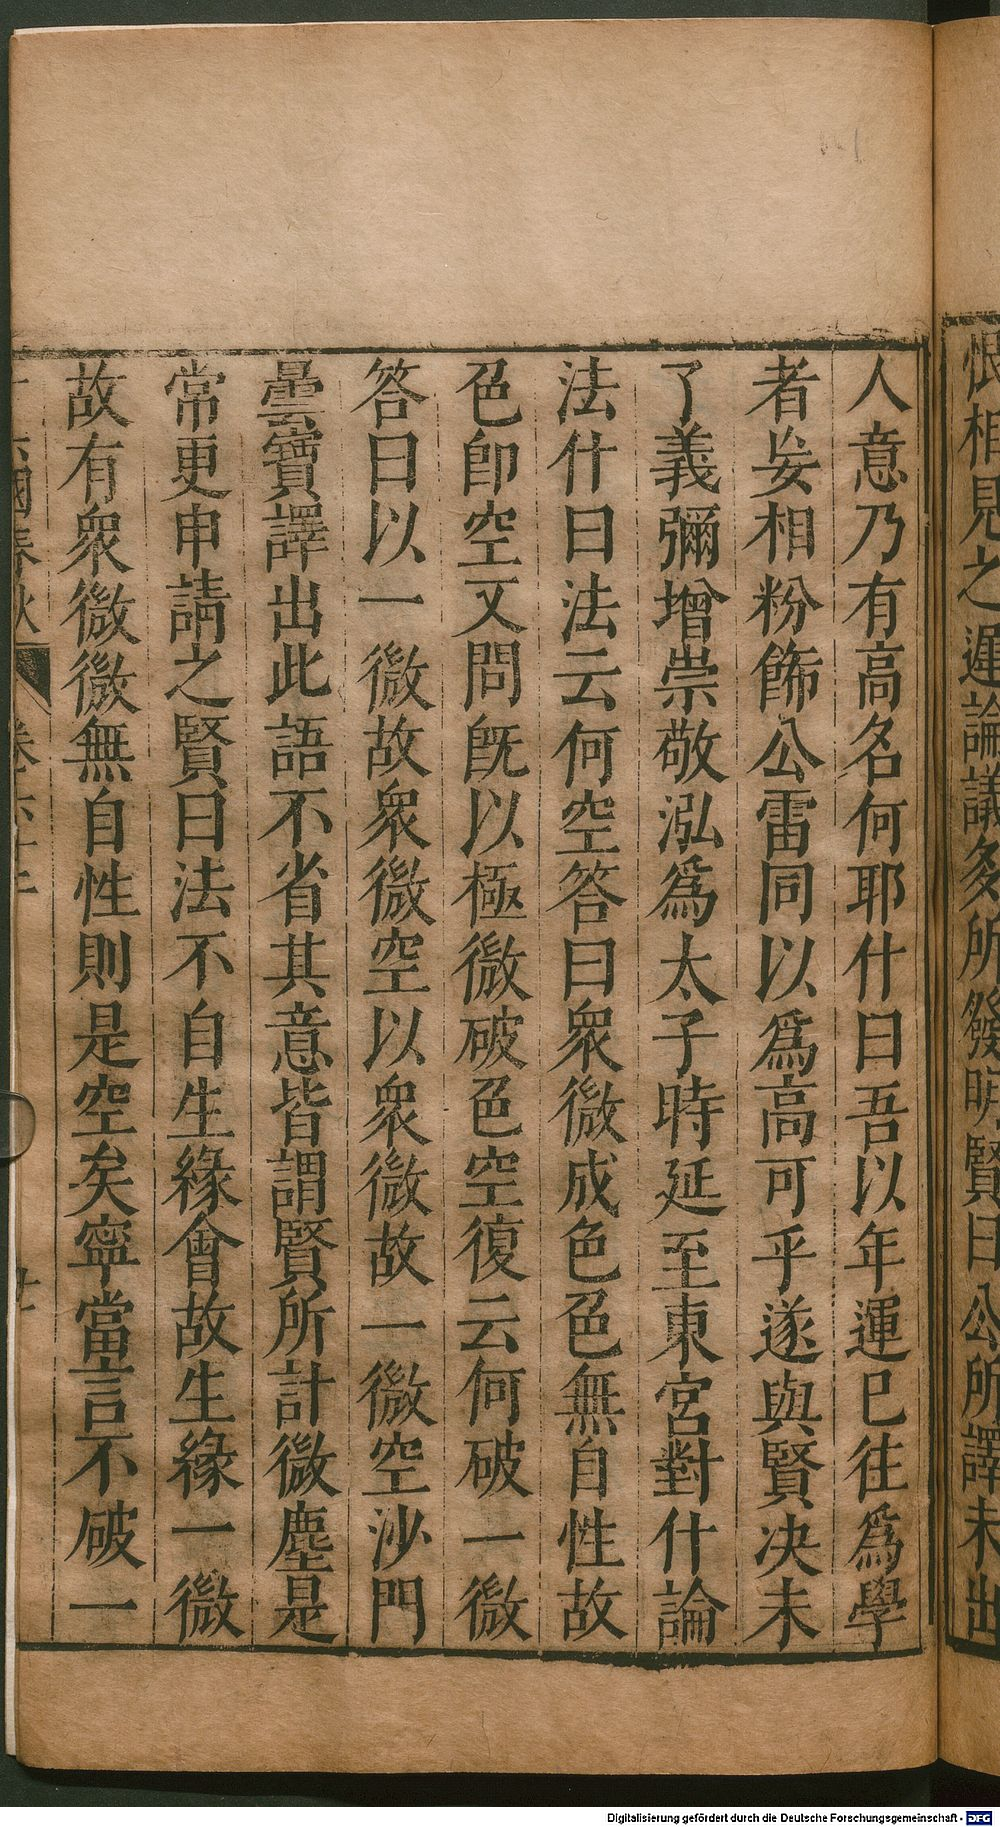 恨相見之遲論議多所發明賢曰公所譯未出
人意乃有高名何耶什曰吾以年運已往爲學
者妄相粉飾公雷同以爲高可乎遂與賢决未
了義彌增崇敬泓爲太子時延至東宮對什論
法什曰法云何空答曰衆微成色色無自性故
色卽空又問旣以極微破色空復云何破一微
答曰以一微故衆微空以衆微故一微空沙門
曇寶譯出此語不省其意皆謂賢所計微塵是
常更申請之賢曰法不自生緣會故生緣一微
故有衆微微無自性則是空矣寧當言不破一
十六國春秋 卷六十二 廿
Digitalisierung gefördert durch die Deutsche Forschungsgemeinschaft - DFG